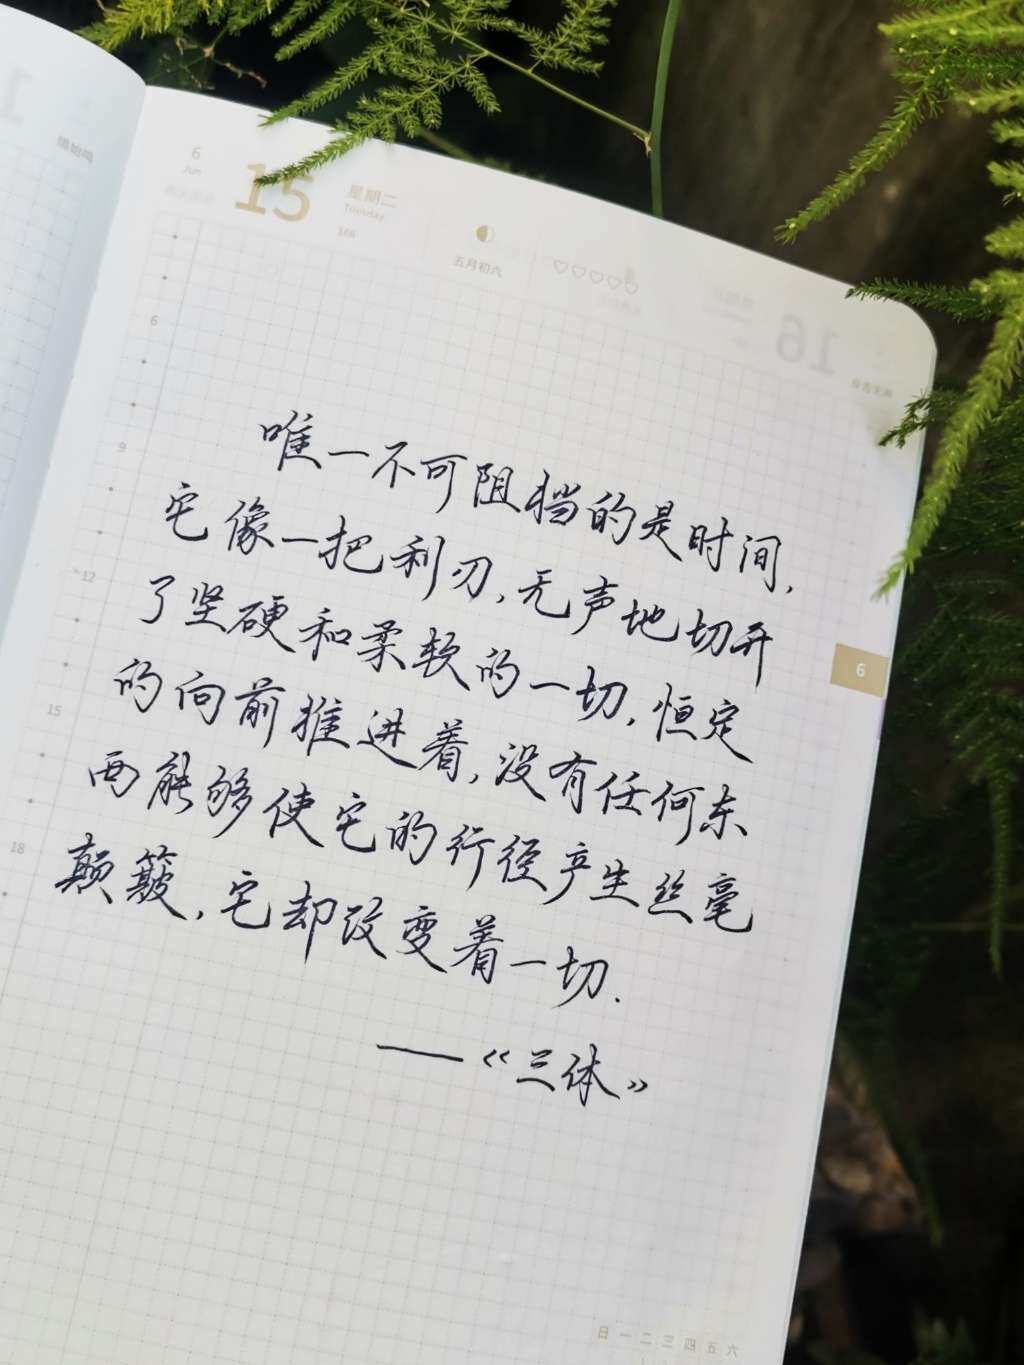 6
Jun
15
星期二
Tuesday
166
五月初六
16
6
9
12
15
18
6
唯一不可阻挡的是时间,
它像一把利刃,无声地切开
了坚硬和柔软的一切,恒定
的向前推进着,没有任何东
西能够使它的行径产生丝毫
颠簸,它却改变着一切.
——《三体》
六 五 四 三 二 一 日